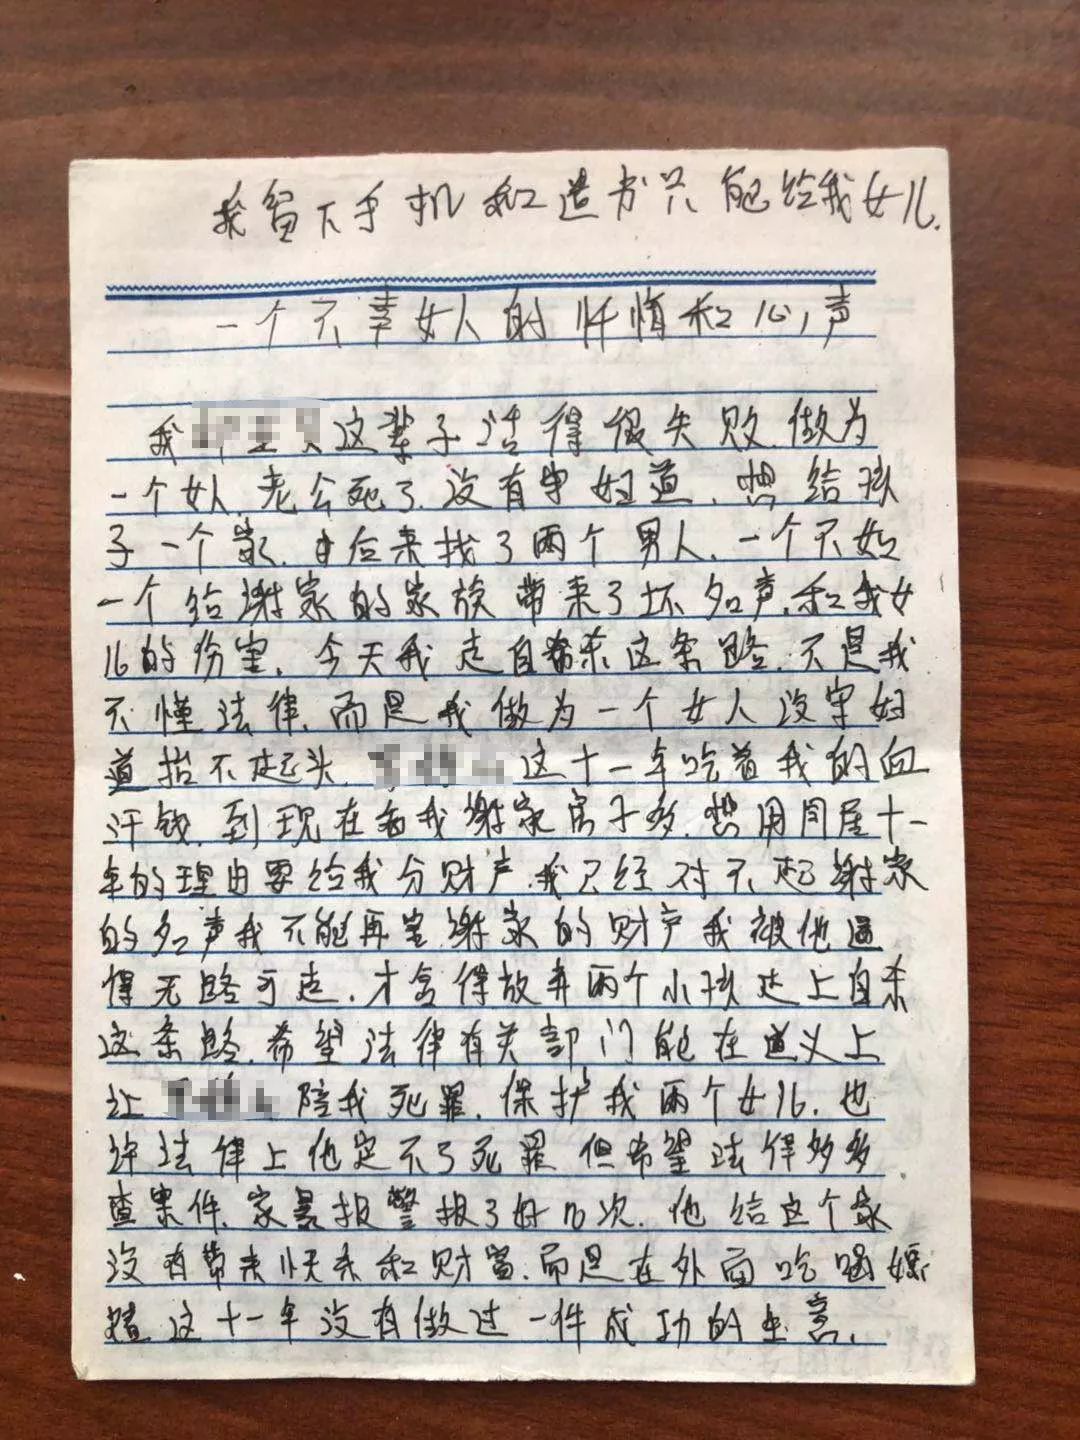 我留下手机和遗书只能给我女儿.
一个不幸女人的忏悔和心声
我这辈子活得很失败.做为
一个女人.老公死了.没有守妇道.想给孩
子一个家.后来找了两个男人.一个不如
一个给谢家的家族带来了坏名声.和我女
儿的伤害.今天我走自杀这条路.不是我
不懂法律.而是我做为一个女人没守妇
道抬不起头.这十一年吃着我的血
汗钱.到现在我谢家房子多.想用同居十一
年的理由要给我分财产.我已经对不起谢家
的名声我不能再害谢家的财产我被他逼
得无路可走.才舍得放弃两个小孩走上自杀
这条路.希望法律有关部门能在道义上
让陪我死罪.保护我两个女儿.也
许法律上他定不了死罪但希望法律多多
查案件.家暴报警报了好几次.他给这个家
没有带来快乐和财富.而是在外面吃喝嫖
赌这十一年没有做过一件成功的生意.